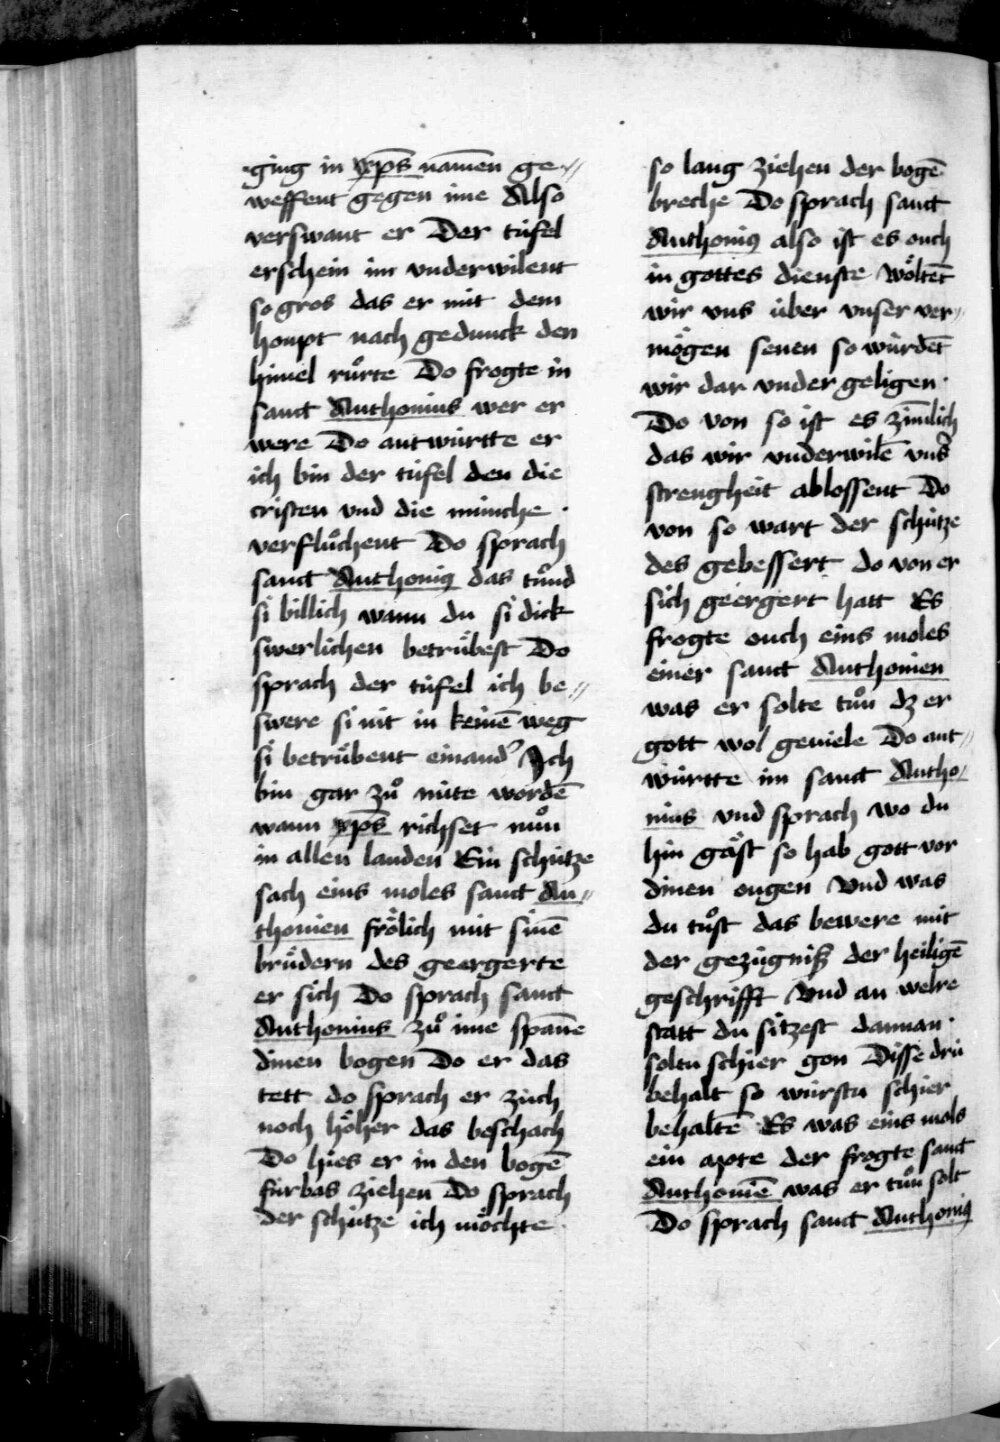 ging in xp̄s namen ge//
weffent gegen ime Also
verswant er Der tüfel
erschein im vnderwilent
so gros das er mit dem
houpt nach gedunck den
himel ruͦrte Do frogte in
sanct Anthonius wer er
were Do antwürtte er
ich bin der tüfel den die
cristen vnd die münche ·
verfluͦchent Do sprach
sanct Anthoniꝰ das tuͦnd
si billich wann du si dick
swerlichen betruͤbest Do
sprach der tüfel ich be//
swere si nit in keinē weg
si betruͤbent einandˀ Ich
bin gar zuͦ nüte wordē
wann xp̄s richset nuͦn
in allen landen Ein schütze
sach eins moles sanct An//
thonien froͤlich mit sinē
bruͤdern des geergerte
er sich Do sprach sanct
Anthonius zuͦ ime spañe
dinen bogen Do er das
tett do sprach er züch
noch hoͤher das beschach
Do hies er in den bogē
fürbas ziehen Do sprach
der schütze ich moͤchte
so lang ziehen der bogē
breche Do sprach sanct
Anthoniꝰ also ist es ouch
in gottes dienste woͤltēt
wir vns über vnser ver//
moͤgen senen so würdēt
wir dar vnder geligen ·
Do von so ist es zim̄lich
das wir vnderwilē vnsˀ
strengheit ablossent Do
von so wart der schütze
des gebessert do von er
sich geergert hatt Es
frogte ouch eins moles
einer sanct Anthonien
was er solte tuͦn dz er
gott wol geuiele Do ant//
württe im sanct Antho//
nius vnd sprach wo du
hin gaͤst so hab gott vor
dinen ougen Vnd was
du tuͦst das bewere mit
der gezügniß der heiligē
geschrifft Vnd an welre
statt du sitzest dannan ·
soltu schier gon Disse drü
behalt so würstu schier
behaltē Es was eins mols
ein apte der frogte sanct
Anthoniē was er tuͦn solt
Do sprach sanct Anthoniꝰ